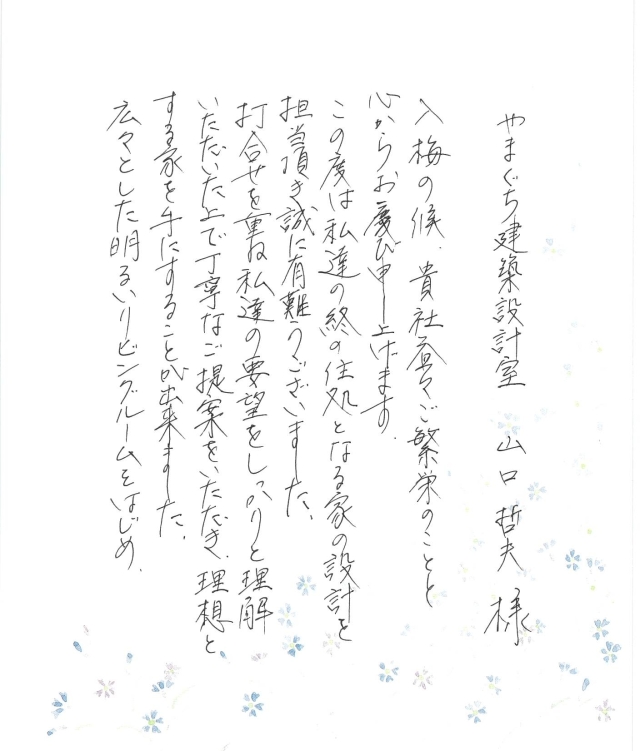 やまぐち建築設計室　山口 哲夫 様
入梅の候、貴社益々ご繁栄のことと
心からお慶び申し上げます。
この度は私達の終の住処となる家の設計を
担当頂き誠に有難うございました。
打合せを重ね私達の要望をしっかりと理解
いただいた上で丁寧なご提案をいただき、理想と
する家を手にすることが出来ました。
広々とした明るいリビングルームをはじめ、